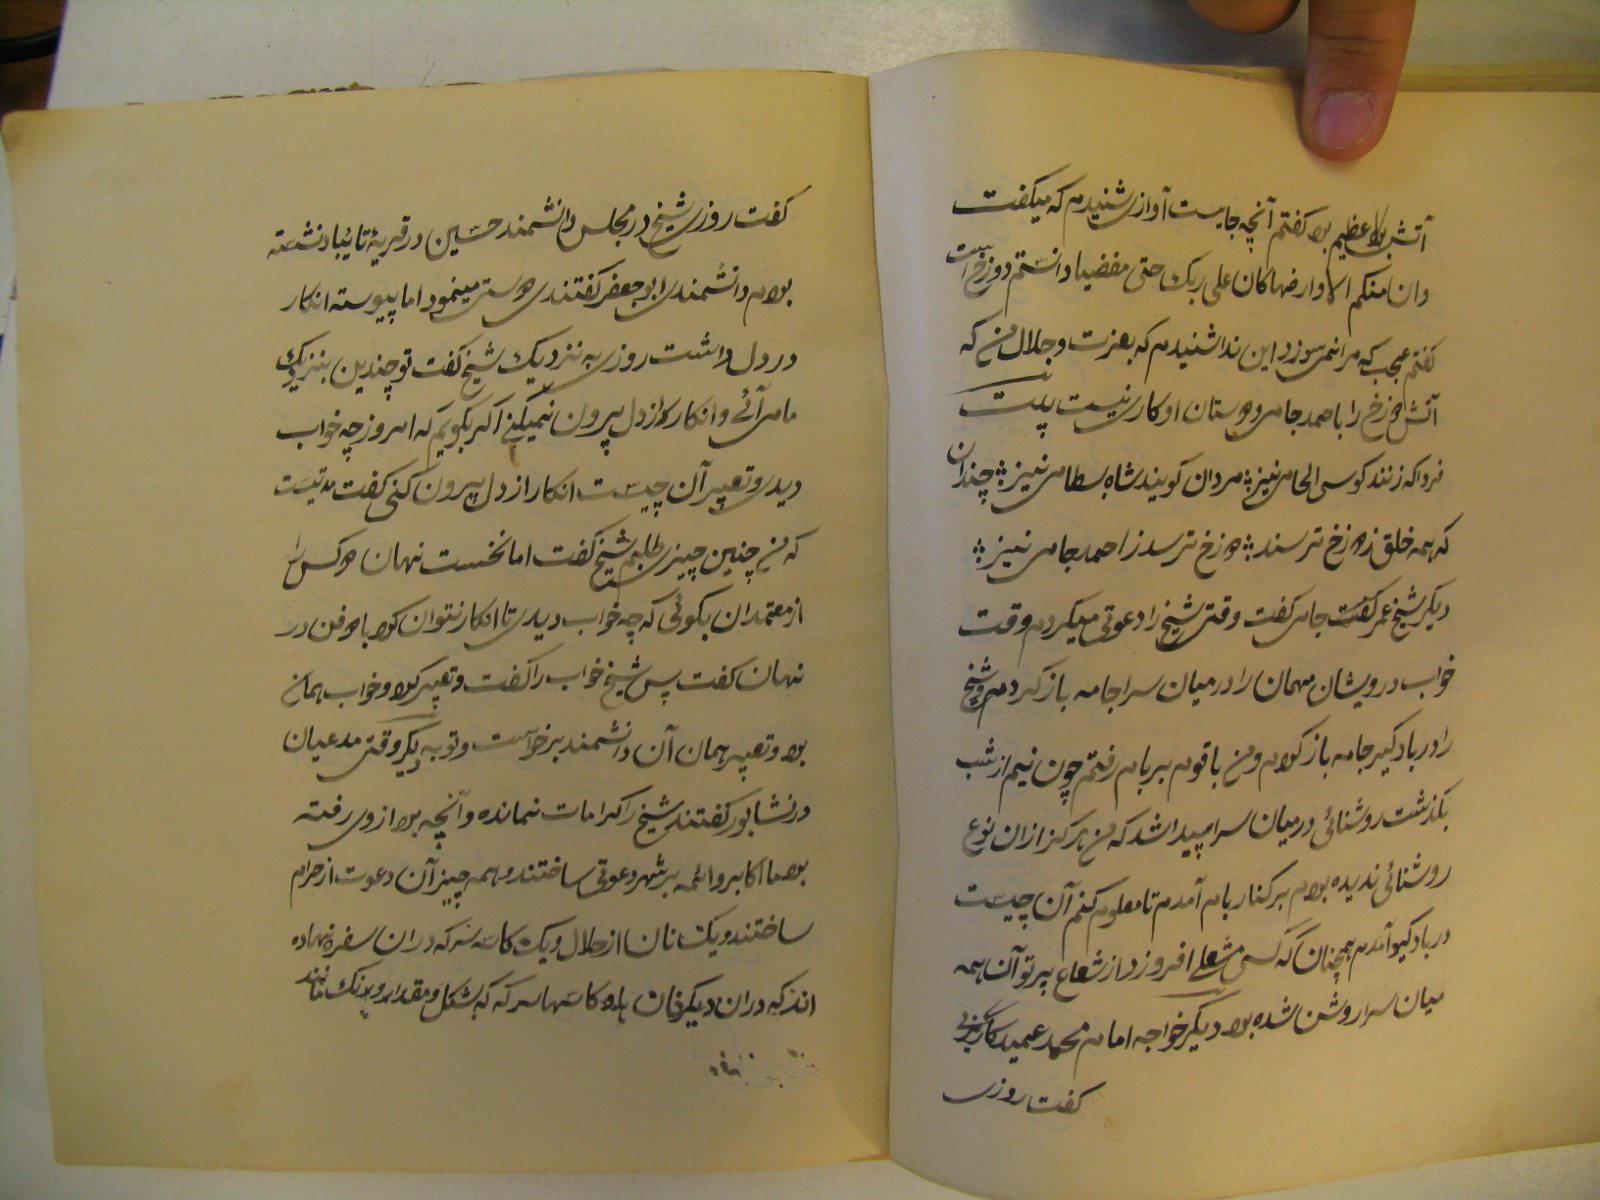 آتش بود عظیم بود گفتم آنچه جایست آوازی شنیدم که میگفت
وان منکم الا واردها کان علی ربک حتی مقضیا دانستم دوزخ است
گفتم عجب که مرا نمی سوزد این ندا شنیدم که بعزت و جلال من که
آتش دوزخ را با احمد جامی و دوستان او کاری نیست بیت
فردا که زنند کوس الحامی نیز مردان گویند شاه بسطامی نیز چندان
که همه خلق ز دوزخ ترسند دوزخ ترسد ز احمد جامی نیز
دیگر شیخ عمر گفت جامی گفت وقتی شیخ را دعوتی میکردم وقت
خواب درویشان مهمان را در میان سرا جامه باز کردم و شیخ
را در بادگیر جامه باز کردم و من با قوم بر بام رفتم چون نیم از شب
بگذشت روشنائی در میان سرا پیدا شد که من هرگز ازان نوع
روشنائی ندیده بودم بر کنار بام آمدم تا معلوم کنم آن چیست
در بادگیر آمدم همچنان که کسی مشعلی افروزد از شعاع پرتو آن همه
میان سرا روشن شده بود دیگر خواجه امام محمد عمید کاریزی
گفت روزی
گفت روزی شیخ در مجلس دانشمند حسین در قریۀ تایباد نشسته
بودم دانشمندی ابو جعفر گفتندی دوستی مینمود اما پیوسته انکار
در دل داشت روزی به نزدیک شیخ گفت تو چندین بنزدیک
ما می آئی و انکار را از دل بیرون نمیکنی اگر بگویم که امروز چه خواب
دیدی و تعبیر آن چیست انکار از دل بیرون کنی گفت مدتیست
که من چنین چیزی طلبم شیخ گفت اما نخست نهان دو کس را
از معتمدان بگوئی که چه خواب دیدی تا انکار نتوان کرد با دو تن در
نهان گفت پس شیخ خواب را گفت و تعبیر کرد و خواب همان
بود و تعبیر همان آن دانشمند برخواست و توبه دیگر وقتی مدعیان
در نشابور گفتند شیخ را کرامات نمانده و آنچه بود از وی رفته
بود اکابر و ائمه بر شهر دعوتی ساختند و همه چیز آن دعوت از حرام
ساختند و یک نان از حلال و یک کاسه سرکه دران سفره نهاده
اند که دران دیگر نان کاسها سرکه که بشکل و مقدار و رنگ مانند